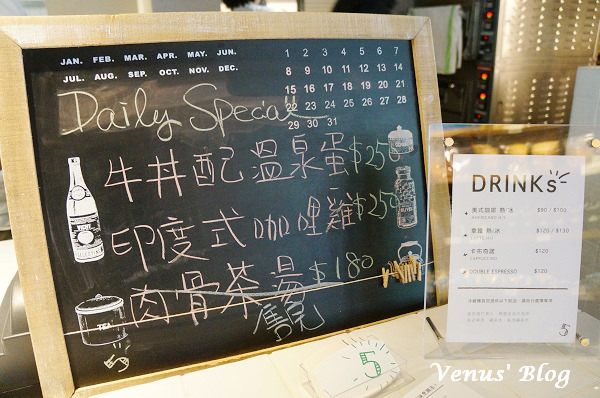 JAN. FEB. MAR. APR. MAY. JUN.
JUL. AUG. SEP. OCT. NOV. DEC.
1 2 3 4 5 6 7
8 9 10 11 12 13 14
15 16 17 18 19 20 21
22 23 24 25 26 27 28
29 30 31
Daily Special
牛丼配溫泉蛋$250
印度式咖哩雞$250
肉骨茶湯$180
售完
TEA
5
DRINKs
美式咖啡 熱/冰 $90 / $100
拿鐵 熱/冰 $120 / $130
卡布奇諾 $120
CAPPUCCINO
DOUBLE ESPRESSO $120
5
Venus' Blog